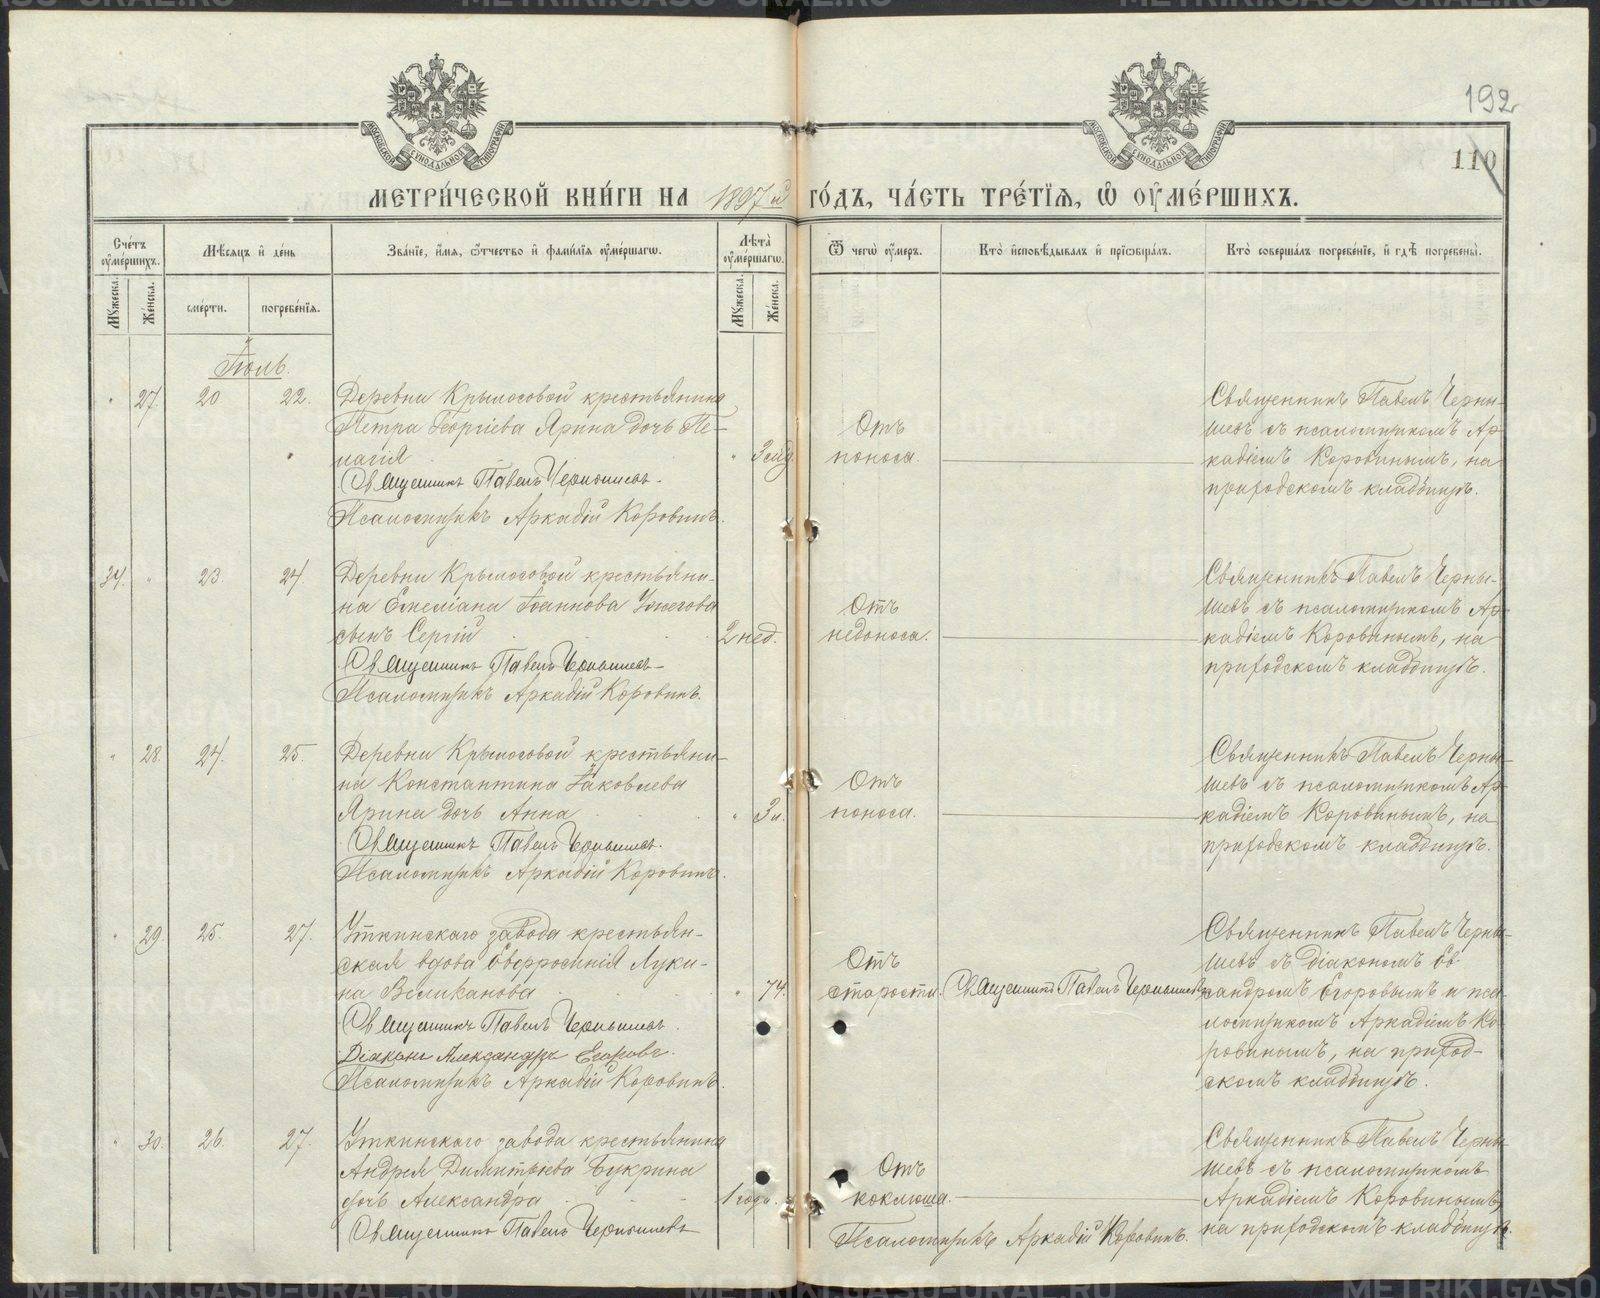 192
110
МЕТРИ́ЧЕСКОЙ КНИ́ГИ НА 1897й ГО́ДЪ, ЧА́СТЬ ТРЕ́ТЇЯ, Ѽ ОУМЕ́РШИХЪ.
Сче́тъ оумершихъ.
Мужеска.
Же́нска.
Мѣсяцъ и день
сме́рти.
погребе́нїя.
Зва́нїе, и́мя, о́тчество и фами́лїя оумершагѡ.
Лѣта̀ оумершагѡ.
Мужеска.
Же́нска.
Ѿ чегѡ̀ оумеръ.
Кто̀ исповѣдывалъ и прїѡбща́лъ.
Кто̀ соверша́лъ погребе́нїе, и гдѣ̀ погребены̀.
Іюль.
" 27. 20 22.
Деревни Крылосовой крестьянина
Петра Георгіева Ярина дочь Пе-
лагія
" 3
Священникъ Павелъ Чернышевъ.
Псаломщикъ Аркадій Коровинъ.
Отъ
поноса.
Священникъ Павелъ Черны-
шевъ съ псаломщикомъ Ар-
кадіемъ Коровинымъ, на
приходскомъ кладбищѣ.
34. " 23. 24.
Деревни Крылосовой крестьяни-
на Емеліана Іоаннова
сынъ Сергій
2 нед.
Священникъ Павелъ Чернышевъ
Псаломщикъ Аркадій Коровинъ.
Отъ
недоноса.
Священникъ Павелъ Черны-
шевъ съ псаломщикомъ Ар-
кадіемъ Коровинымъ, на
приходскомъ кладбищѣ.
" 28. 24. 25.
Деревни Крылосовой крестьяни-
на Константина Іаковлева
Ярина дочь Анна
" 3
Священникъ Павелъ Чернышевъ.
Псаломщикъ Аркадій Коровинъ.
Отъ
поноса.
Священникъ Павелъ Черны-
шевъ съ псаломщикомъ Ар-
кадіемъ Коровинымъ, на
приходскомъ кладбищѣ.
" 29. 25. 27.
Уткинскаго завода крестьян-
ская вдова Евфросинія Луки-
на Великанова
" 74.
Священникъ Павелъ Чернышевъ.
Діаконъ Александръ Егоровъ.
Псаломщикъ Аркадій Коровинъ.
Отъ
старости.
Священникъ Павелъ Чернышевъ
Священникъ Павелъ Черны-
шевъ съ діакономъ
сандромъ Егоровымъ и пса-
ломщикомъ Аркадіемъ Ко-
ровинымъ, на приход-
скомъ кладбищѣ.
" 30. 26. 27.
Уткинскаго завода крестьянина
Андрея Димитріева Букрина
дочь Александра
1 года.
Священникъ Павелъ Чернышевъ
Отъ
коклюша.
Псаломщикъ Аркадій Коровинъ.
Священникъ Павелъ Черны-
шевъ съ псаломщикомъ
Аркадіемъ Коровинымъ,
на приходскомъ кладбищѣ.
METRIKI.GASO-URAL.RU